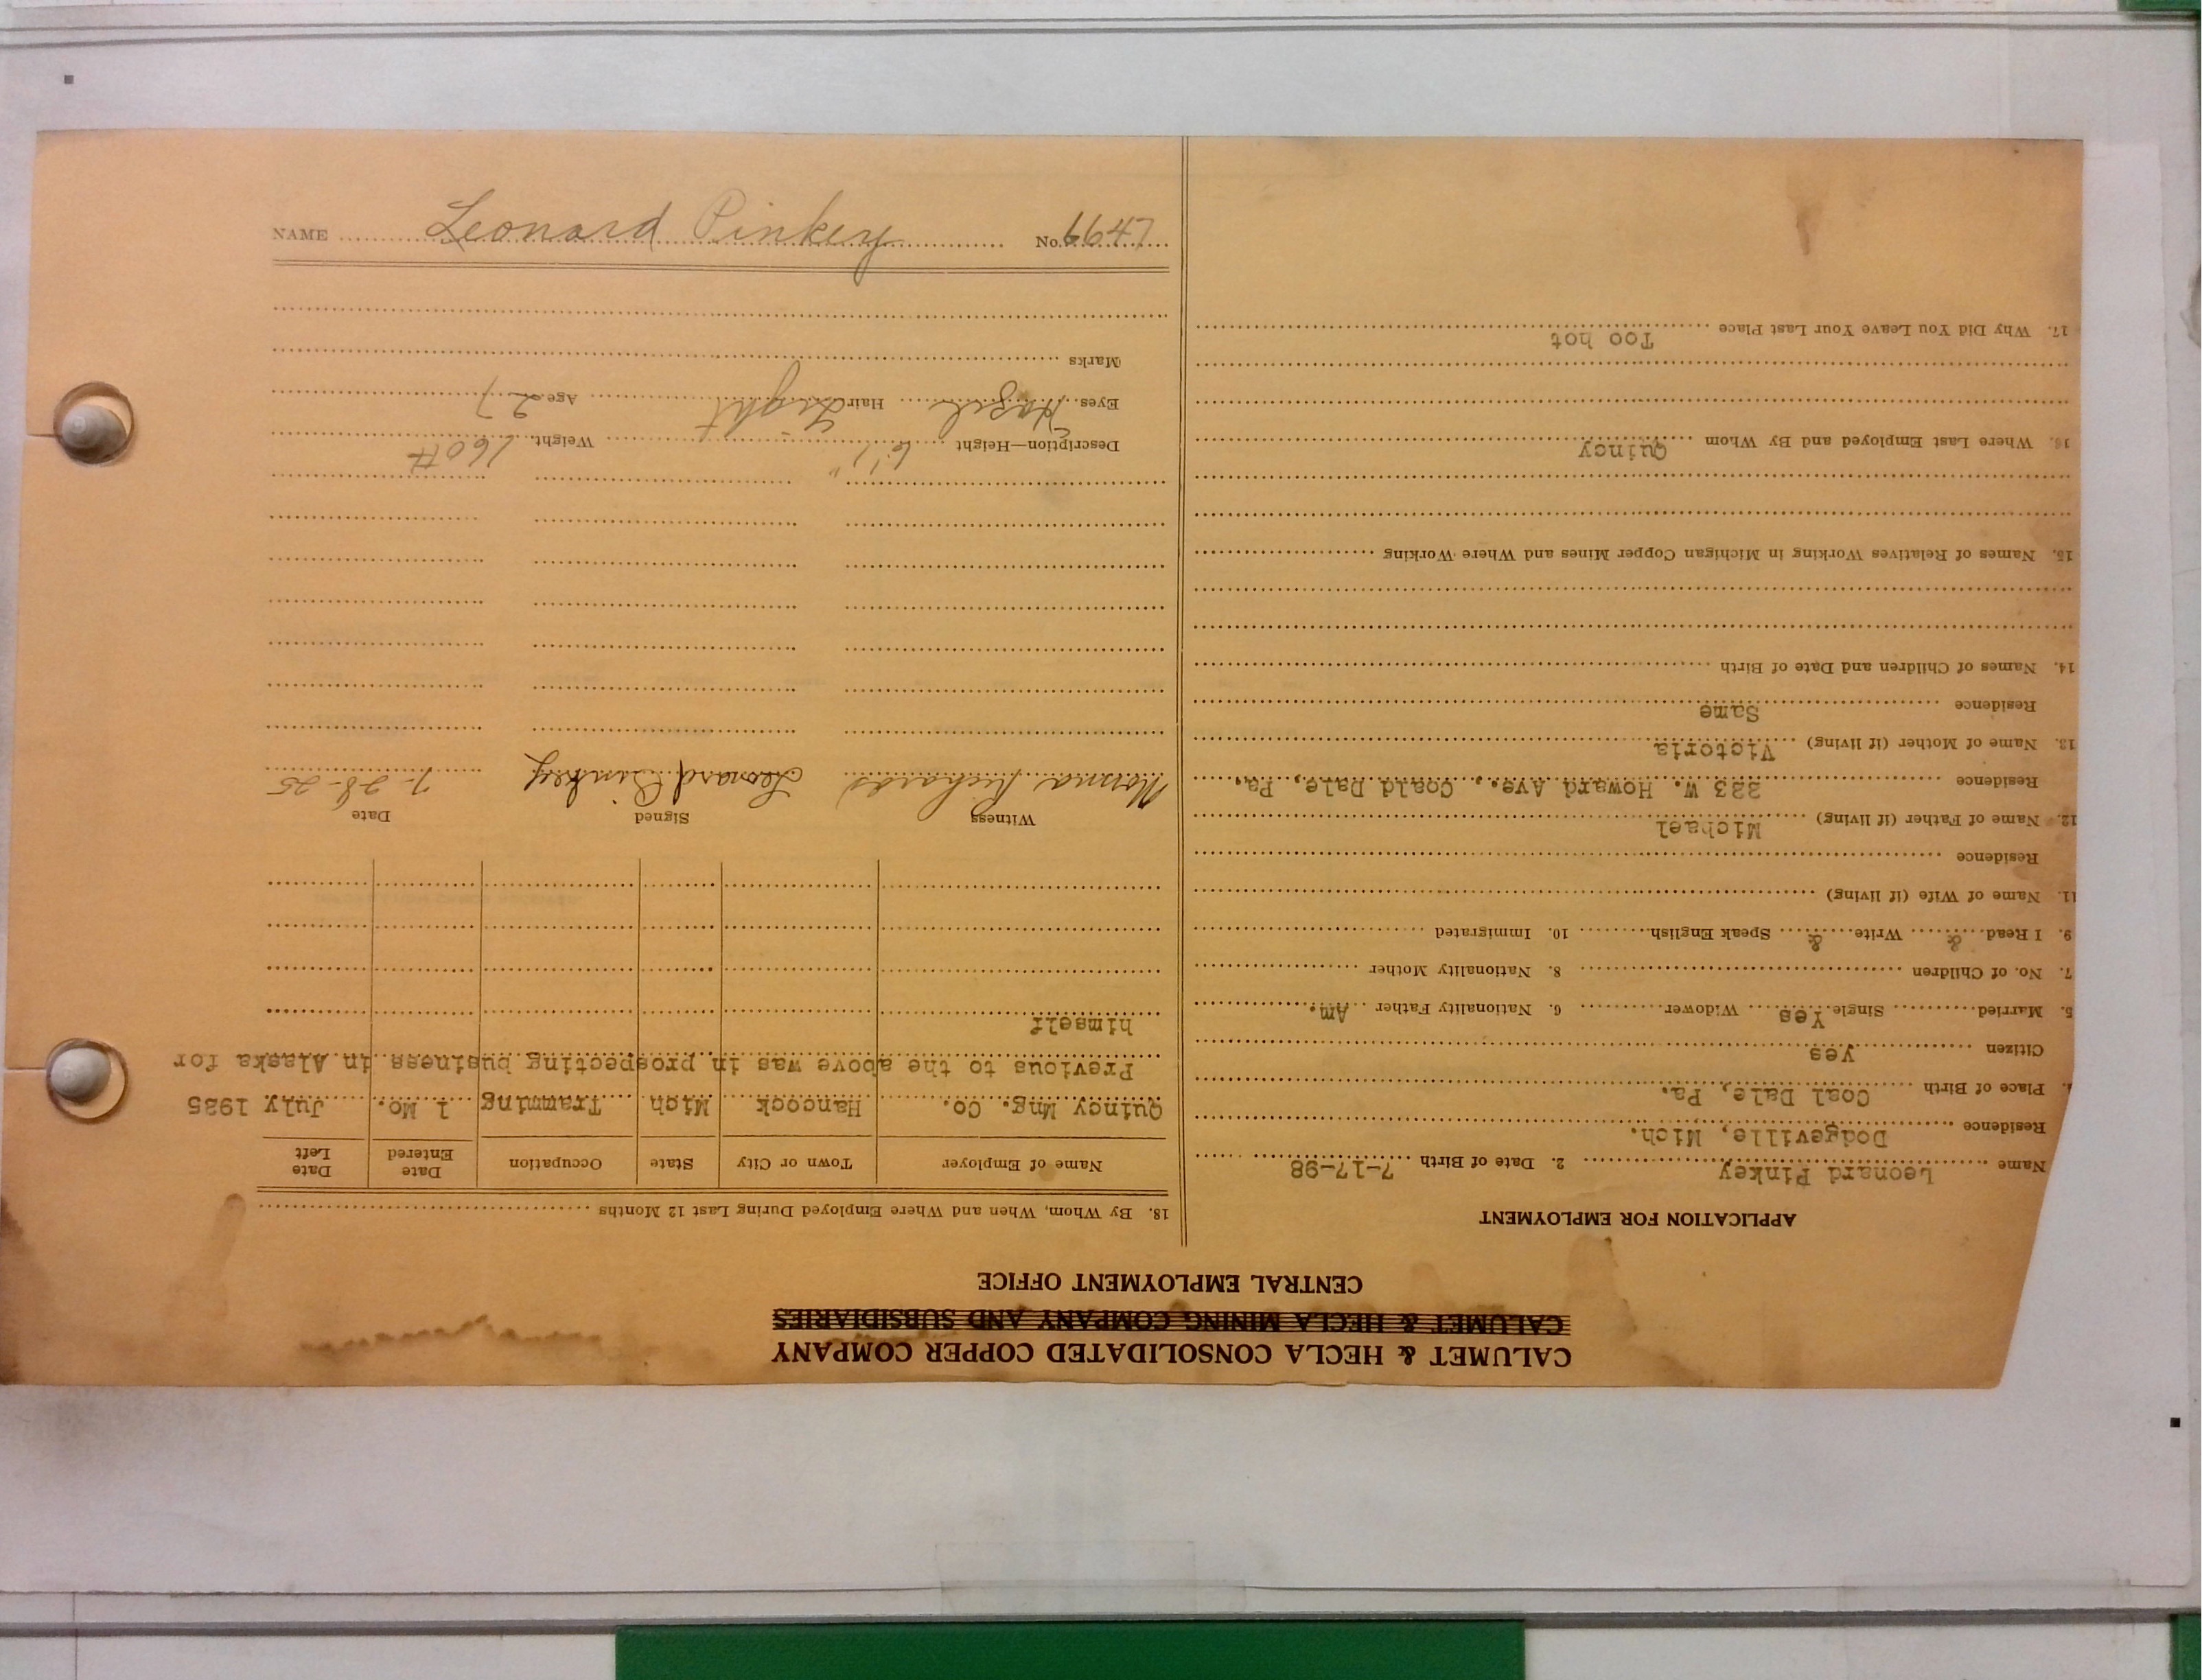 CALUMET & HECLA CONSOLIDATED COPPER COMPANY
CALUMET & HECLA MINING COMPANY AND SUBSIDIARIES
CENTRAL EMPLOYMENT OFFICE
APPLICATION FOR EMPLOYMENT
Name Leonard Pinkey 2. Date of Birth 7-17-98
Residence Dodgeville, Mich.
Place of Birth Coal Dale, Pa.
Citizen Yes
5. Married Single Yes Widower 6. Nationality Father Am.
7. No. of Children 8. Nationality Mother
9. I Read & Write & Speak English 10. Immigrated
11. Name of Wife (if living)
Residence
12. Name of Father (if living) Michael
Residence 323 W. Howard Ave., Coald Dale, Pa.
13. Name of Mother (if living) Victoria
Residence Same
14. Names of Children and Date of Birth
15. Names of Relatives Working in Michigan Copper Mines and Where Working
16. Where Last Employed and By Whom Quincy
17. Why Did You Leave Your Last Place Too hot
18. By Whom, When and Where Employed During Last 12 Months
Name of Employer Town or City State Occupation Date Entered Date Left
Quincy Mng. Co. Hancock Mich Tramming 1 Mo. July 1925
Previous to the above was in prospecting business in Alaska for
himself
Witness Signed Date
Norma Richards Leonard Pinkey 7-28-25
Description—Height 6'1" Weight 160#
Eyes Hazel Hair Light Age 27
Marks
NAME Leonard Pinkey No. 6647